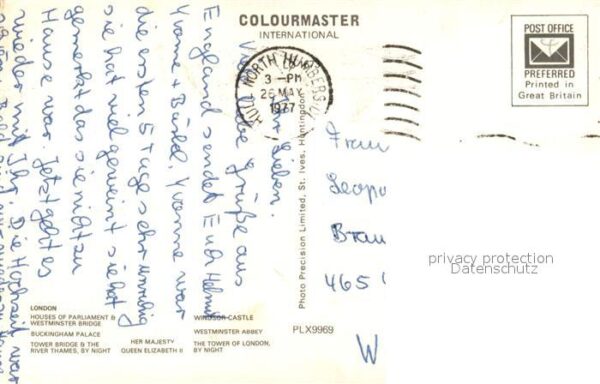 COLOURMASTER
INTERNATIONAL
POST OFFICE
PREFERRED
Printed in
Great Britain
HULL NORTH HUMBERSIDE
3 - PM
26 MAY
1977
Ihr Lieben.
Viele liebe Grüße aus
England sendet Euch Helmut
Yvonne + Bärbel. Yvonne war
die ersten 5 Tage sehr
sie hat viel geweint sie hat
gemerkt das sie nicht zu
Hause war. Jetzt geht es
wieder mit Ihr. Die Hochzeit war
Photo Precision Limited, St. Ives, Huntingdon
Frau
Leopo
Brau
465
W
privacy protection
Datenschutz
LONDON
HOUSES OF PARLIAMENT &
WESTMINSTER BRIDGE
BUCKINGHAM PALACE
TOWER BRIDGE & THE
RIVER THAMES, BY NIGHT
HER MAJESTY
QUEEN ELIZABETH II
WINDSOR CASTLE
WESTMINSTER ABBEY
THE TOWER OF LONDON,
BY NIGHT
PLX9969